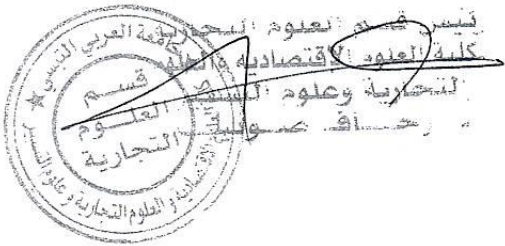 رئيس قسم العلوم التجارية
كلية العلوم الاقتصادية والعلوم
التجارية وعلوم التسيير
جامعة العربي التبسي
قسم
العلوم
التجارية
الاقتصادية و العلوم التجارية و علوم التسيير